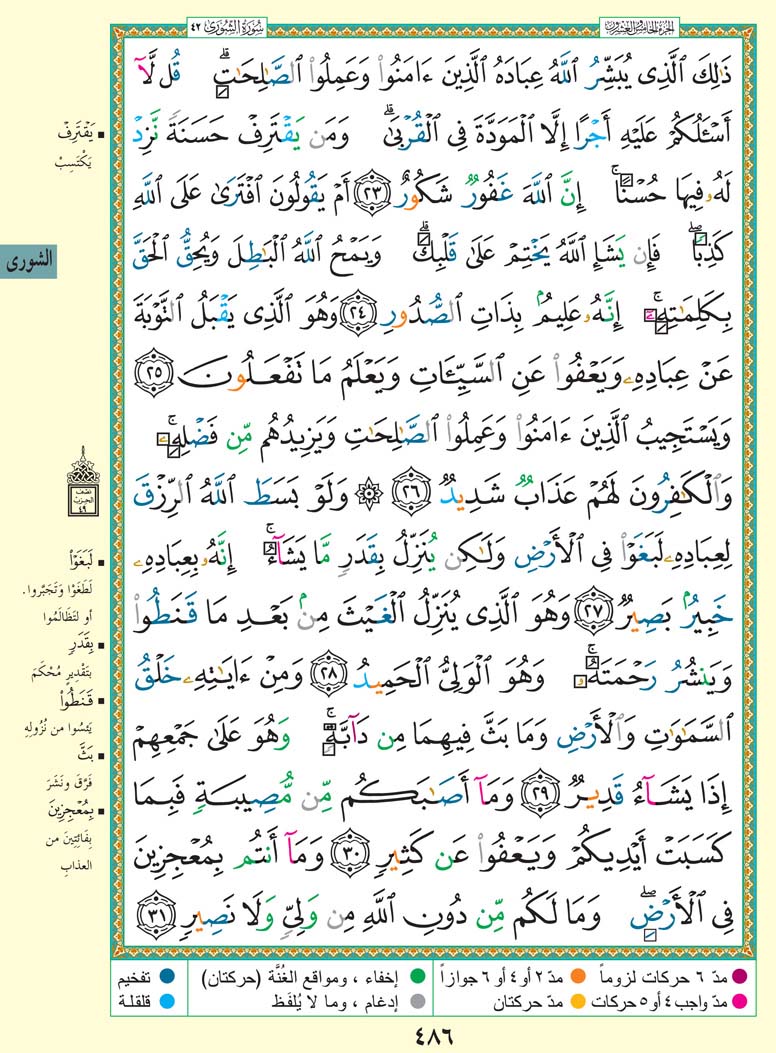 سُورَةُ الشُّورَىٰ ٤٢
الجُزءُ الخَامِسُ وَالعِشْرُونَ
ذَٰلِكَ ٱلَّذِى يُبَشِّرُ ٱللَّهُ عِبَادَهُ ٱلَّذِينَ ءَامَنُوا۟ وَعَمِلُوا۟ ٱلصَّـٰلِحَـٰتِ ۗ قُل لَّآ
أَسْـَٔلُكُمْ عَلَيْهِ أَجْرًا إِلَّا ٱلْمَوَدَّةَ فِى ٱلْقُرْبَىٰ ۗ وَمَن يَقْتَرِفْ حَسَنَةً نَّزِدْ
لَهُۥ فِيهَا حُسْنًا ۚ إِنَّ ٱللَّهَ غَفُورٌ شَكُورٌ ٢٣ أَمْ يَقُولُونَ ٱفْتَرَىٰ عَلَى ٱللَّهِ
كَذِبًا ۖ فَإِن يَشَإِ ٱللَّهُ يَخْتِمْ عَلَىٰ قَلْبِكَ ۗ وَيَمْحُ ٱللَّهُ ٱلْبَـٰطِلَ وَيُحِقُّ ٱلْحَقَّ
بِكَلِمَـٰتِهِۦٓ ۚ إِنَّهُۥ عَلِيمٌۢ بِذَاتِ ٱلصُّدُورِ ٢٤ وَهُوَ ٱلَّذِى يَقْبَلُ ٱلتَّوْبَةَ
عَنْ عِبَادِهِۦ وَيَعْفُوا۟ عَنِ ٱلسَّيِّـَٔاتِ وَيَعْلَمُ مَا تَفْعَلُونَ ٢٥
وَيَسْتَجِيبُ ٱلَّذِينَ ءَامَنُوا۟ وَعَمِلُوا۟ ٱلصَّـٰلِحَـٰتِ وَيَزِيدُهُم مِّن فَضْلِهِۦ ۚ
وَٱلْكَـٰفِرُونَ لَهُمْ عَذَابٌ شَدِيدٌ ٢٦ ۞ وَلَوْ بَسَطَ ٱللَّهُ ٱلرِّزْقَ
لِعِبَادِهِۦ لَبَغَوْا۟ فِى ٱلْأَرْضِ وَلَـٰكِن يُنَزِّلُ بِقَدَرٍ مَّا يَشَآءُ ۚ إِنَّهُۥ بِعِبَادِهِۦ
خَبِيرٌۢ بَصِيرٌ ٢٧ وَهُوَ ٱلَّذِى يُنَزِّلُ ٱلْغَيْثَ مِنۢ بَعْدِ مَا قَنَطُوا۟
وَيَنشُرُ رَحْمَتَهُۥ ۚ وَهُوَ ٱلْوَلِىُّ ٱلْحَمِيدُ ٢٨ وَمِنْ ءَايَـٰتِهِۦ خَلْقُ
ٱلسَّمَـٰوَٰتِ وَٱلْأَرْضِ وَمَا بَثَّ فِيهِمَا مِن دَآبَّةٍ ۚ وَهُوَ عَلَىٰ جَمْعِهِمْ
إِذَا يَشَآءُ قَدِيرٌ ٢٩ وَمَآ أَصَـٰبَكُم مِّن مُّصِيبَةٍ فَبِمَا
كَسَبَتْ أَيْدِيكُمْ وَيَعْفُوا۟ عَن كَثِيرٍ ٣٠ وَمَآ أَنتُم بِمُعْجِزِينَ
فِى ٱلْأَرْضِ ۖ وَمَا لَكُم مِّن دُونِ ٱللَّهِ مِن وَلِىٍّ وَلَا نَصِيرٍ ٣١
يَقْتَرِفْ
يَكْتَسِبْ
الشورى
نصف
الحزب
٤٩
لَبَغَوْا۟
لَطَغَوْا وَتَجَبَّروا.
أو لتَظَالَمُوا
بِقَدَرٍ
بتَقْدِيرٍ مُحْكَمٍ
قَنَطُوا۟
يَئِسُوا من نُزُولِهِ
بَثَّ
فَرَّقَ ونَشَرَ
بِمُعْجِزِينَ
بِفَائِتِينَ من
العذابِ
مدّ ٦ حركات لزوماً
مدّ ٢ أو ٤ أو ٦ جوازاً
إخفاء ، ومواقع الغُنَّة (حركتان)
تفخيم
مدّ واجب ٤ أو ٥ حركات
مدّ حركتان
إدغام ، وما لا يُلفَظ
قلقلة
٤٨٦